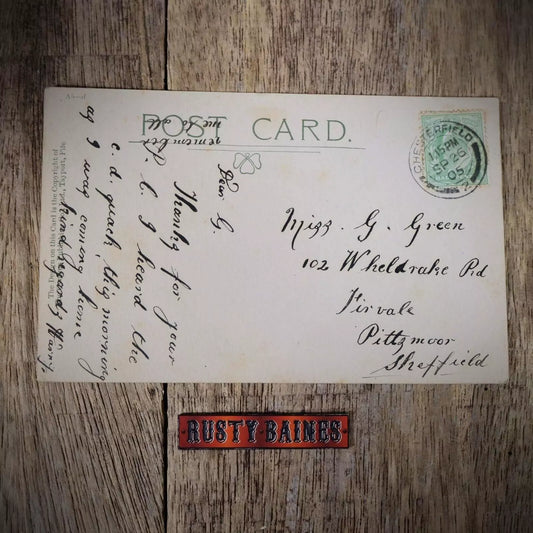 POST CARD.
CHESTERFIELD
1.15 PM
SP 26
05
Dear G.
Thanks for your
P. C. I heard the
c. d. quack this morning
as I was coming home
kind regards
remember
me to all
The Design on this Card is the Copyright of
Tayport, Fife
Miss. G. Green
102 Wheldrake Rd
Firvale
Pittsmoor
Sheffield
RUSTY BAINES